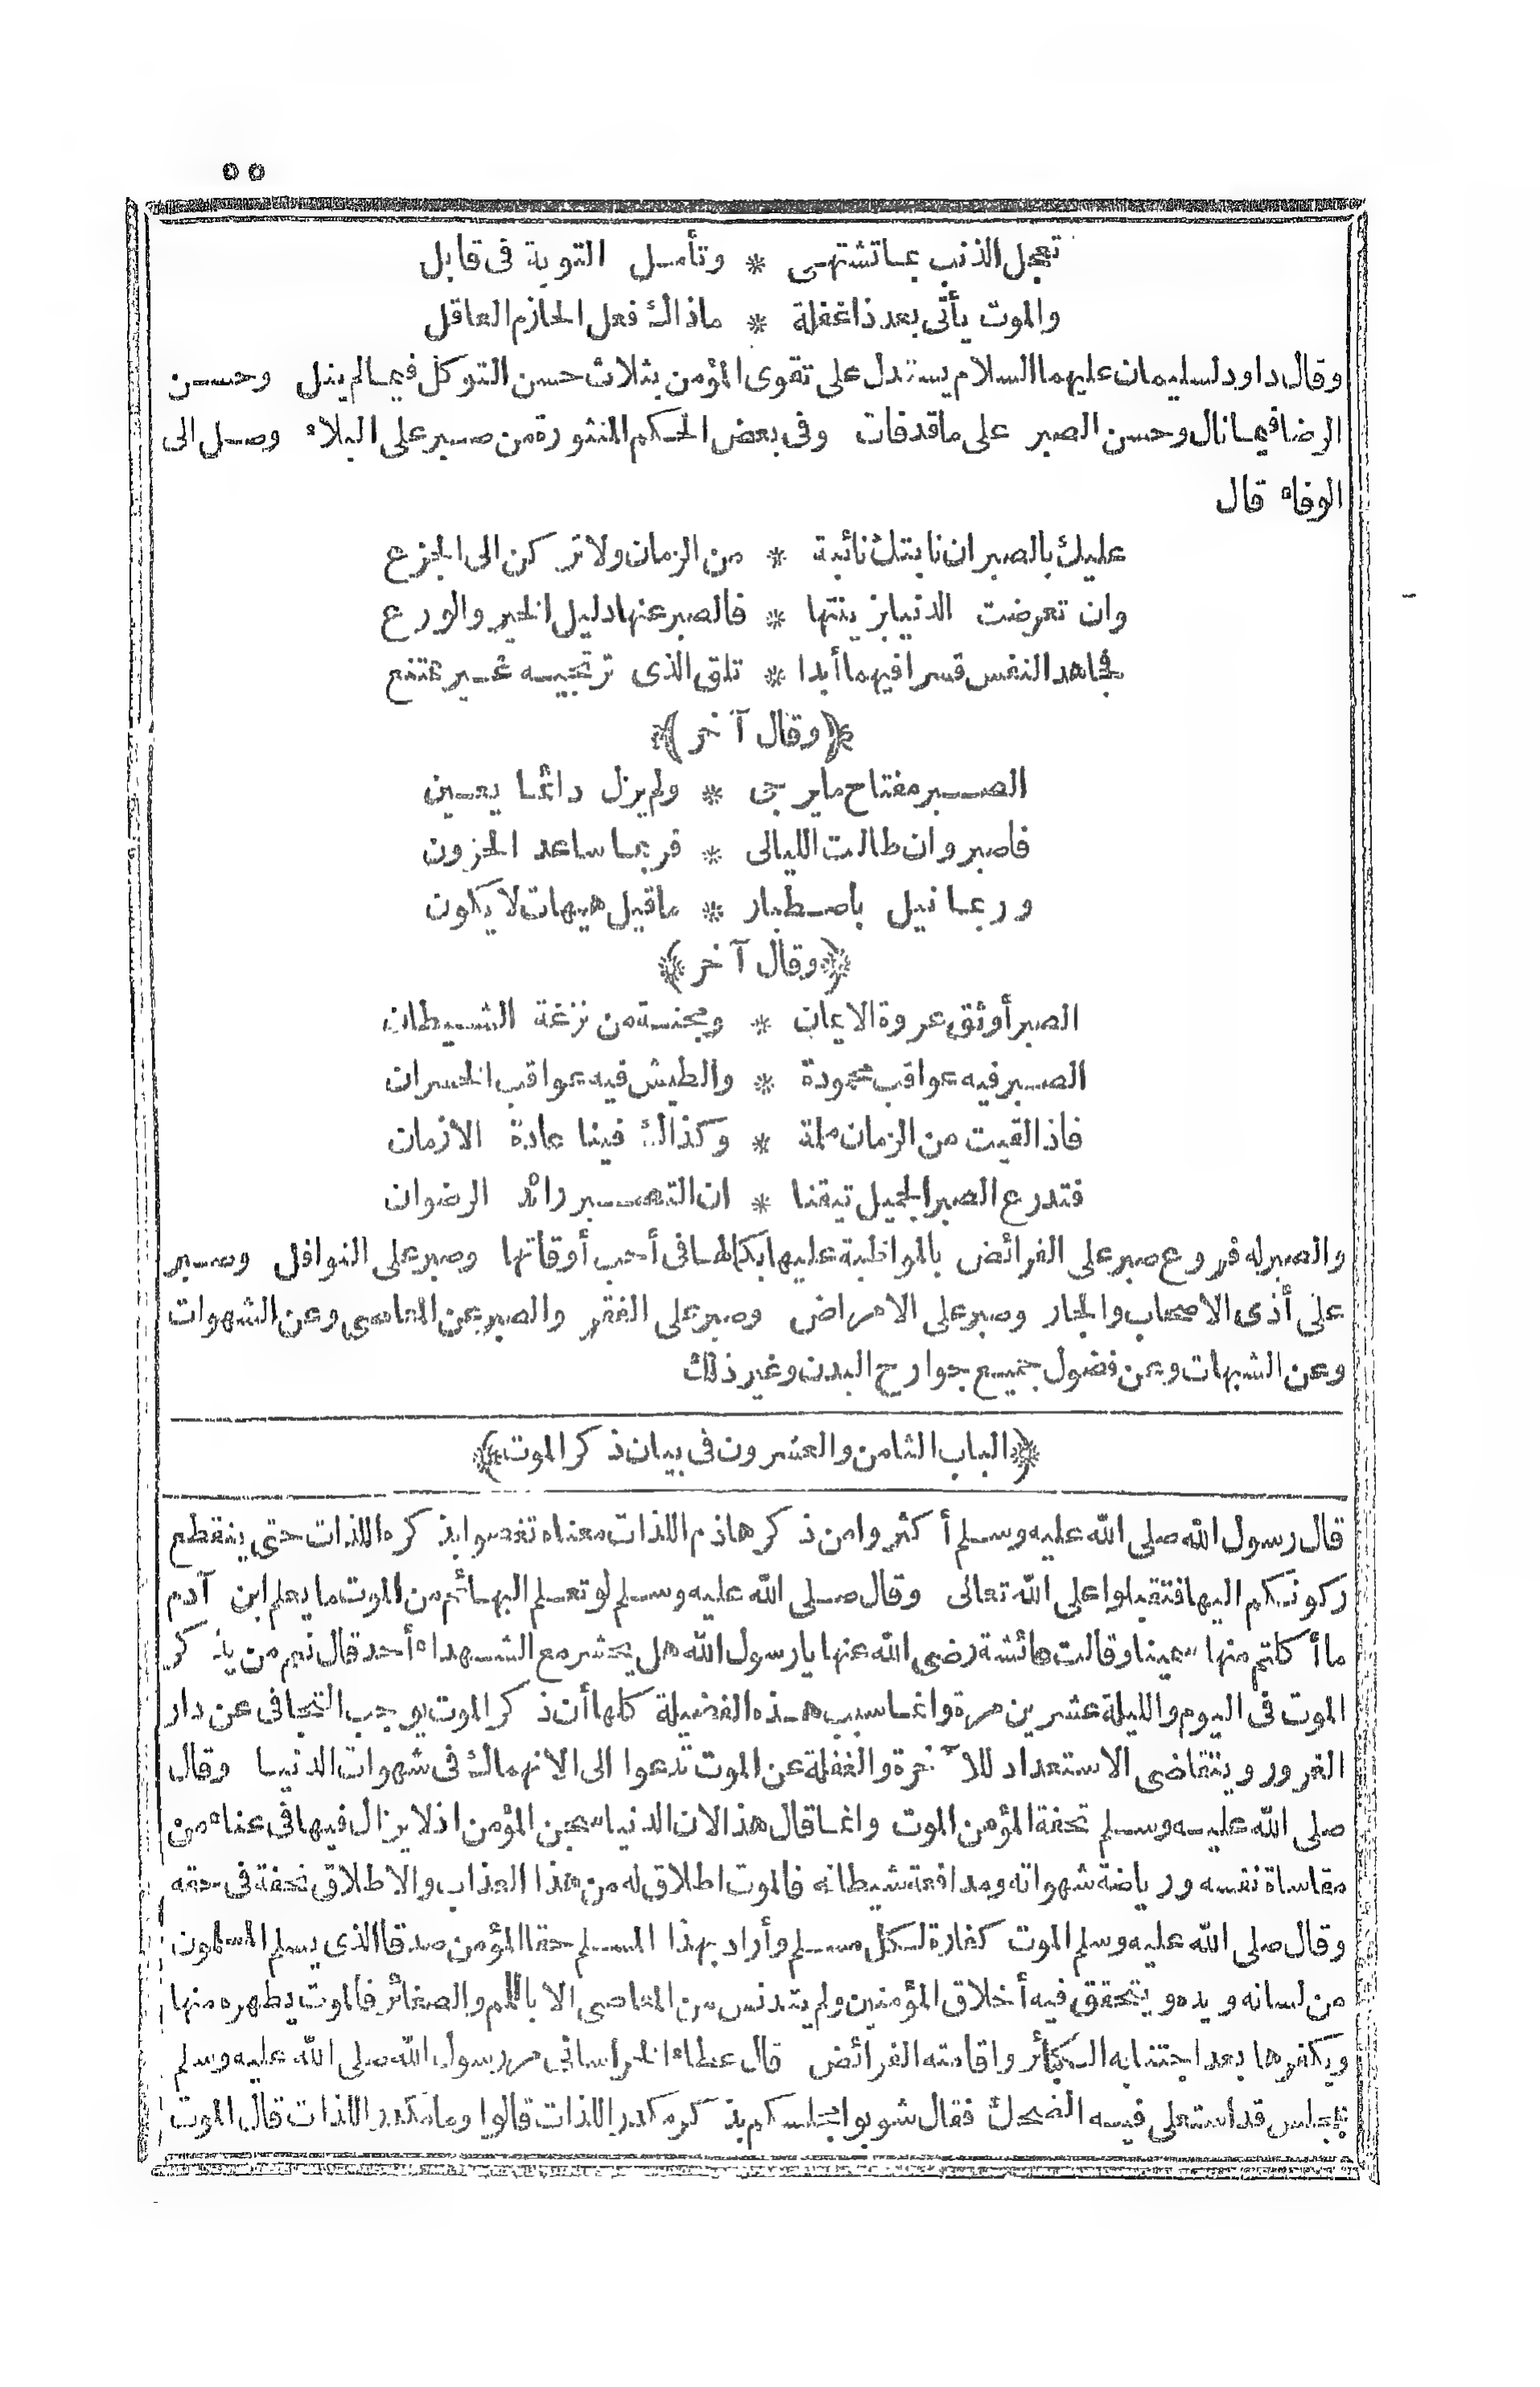 ٥٥
تعجل الذنب بما تشتهى * وتأمل التوبة فى قابل
والموت يأتى بعد ذا غفلة * ماذاك فعل الحازم العاقل
وقال داود لسليمان عليهما السلام يستدل على تقوى المؤمن بثلاث حسن التوكل فيما لم ينل وحسن
الرضا فيما نال وحسن الصبر على ما قد فات وفى بعض الحكم المنثورة من صبر على البلاء وصل الى
الوفاء قال
عليك بالصبر ان نابتك نائبة * من الزمان ولا تركن الى الجزع
وان تعرضت الدنيا بزينتها * فالصبر عنها دليل الخير والورع
فجاهد النفس قسرا فيهما أبدا * تلق الذى ترتجيه غير ممتنع
﴿وقال آخر﴾
الصبر مفتاح ما يرجى * ولم يزل دائما يعين
فاصبر وان طالت الليالى * فربما ساعد الحزون
وربما نيل باصطبار * ما قيل هيهات لا يكون
﴿وقال آخر﴾
الصبر أوثق عروة الايمان * ومجنة من نزغة الشيطان
الصبر فيه عواقب محمودة * والطيش فيه عواقب الخسران
فاذا لقيت من الزمان ملمة * وكذاك فينا عادة الازمان
فتدرع الصبر الجميل تيقنا * ان التصبر رائد الرضوان
والصبر له فروع صبر على الفرائض بالمواظبة عليها بكمالها فى أحب أوقاتها وصبر على النوافل وصبر
على أذى الاصحاب والجار وصبر على الامراض وصبر على الفقر والصبر عن المعاصى وعن الشهوات
وعن الشبهات وعن فضول جميع جوارح البدن وغير ذلك
﴿الباب الثامن والعشرون فى بيان ذكر الموت﴾
قال رسول الله صلى الله عليه وسلم أكثروا من ذكر هاذم اللذات معناه نغصوا بذكره اللذات حتى ينقطع
ركونكم اليها فتقبلوا على الله تعالى وقال صلى الله عليه وسلم لو تعلم البهائم من الموت ما يعلم ابن آدم
ما أكلتم منها سمينا وقالت عائشة رضى الله عنها يا رسول الله هل يحشر مع الشهداء أحد قال نعم من يذكر
الموت فى اليوم والليلة عشرين مرة وانما سبب هذه الفضيلة كلها أن ذكر الموت يوجب التجافى عن دار
الغرور ويتقاضى الاستعداد للآخرة والغفلة عن الموت تدعوا الى الانهماك فى شهوات الدنيا وقال
صلى الله عليه وسلم تحفة المؤمن الموت وانما قال هذا لان الدنيا سجن المؤمن اذ لا يزال فيها فى عناء من
مقاساة نفسه ورياضة شهواته ومدافعة شيطانه فالموت اطلاق له من هذا العذاب والاطلاق تحفة فى حقه
وقال صلى الله عليه وسلم الموت كفارة لكل مسلم وأراد بهذا المسلم حقا المؤمن صدقا الذى يسلم المسلمون
من لسانه ويده ويتحقق فيه أخلاق المؤمنين ولم يتدنس من المعاصى الا باللمم والصغائر فالموت يطهره منها
ويكفرها بعد اجتنابه الكبائر واقامته الفرائض قال عطاء الخراسانى مر رسول الله صلى الله عليه وسلم
بمجلس قد استعلى فيه الضحك فقال شوبوا مجلسكم بذكر مكدر اللذات قالوا وما مكدر اللذات قال الموت